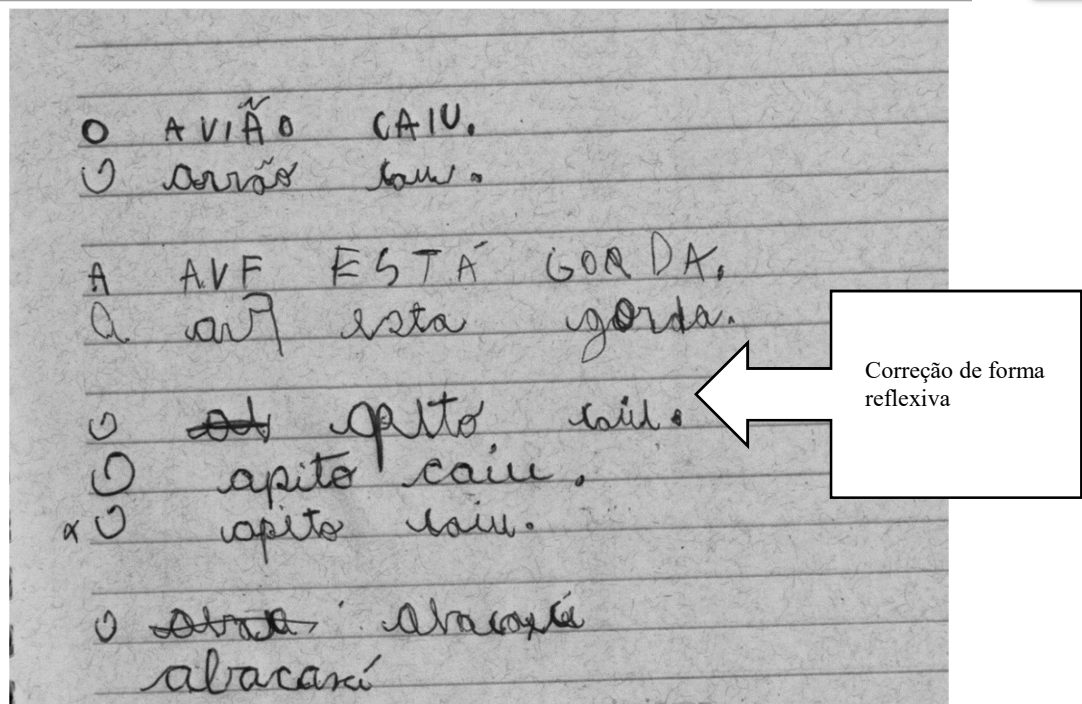 O AVIÃO CAIU.
O avião caiu.
A AVE ESTÁ GORDA.
a av esta gorda.
O apito caiu.
O apito caiu.
x O apito caiu.
O abacaxi
abacaxí
Correção de forma
reflexiva